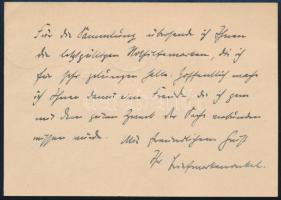 Für die Sammlung übersende ich Ihnen
die letztgültigen Nothilfemarken, die ich
für sehr gelungen halte. Hoffentlich mache
ich Ihnen damit eine Freude, die ich gern
mit dem guten Zweck der Sache verbunden
wissen würde. Mit freundlichem Gruß
Ihr Briefmarkenonkel.